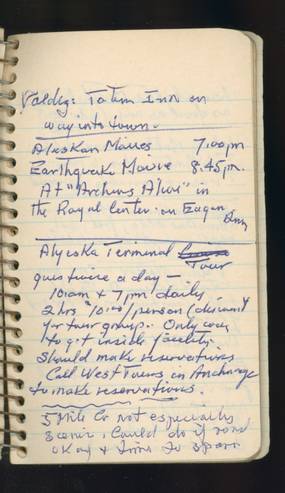 Valdez: Totem Inn on
way into town.
Alaskan Movies 7:00pm
Earthquake Movie 8:45pm.
At "Archives Alive" in
the Royal Center on Eagan
Alyeska Terminal
Tour
goes twice a day —
10am & 7pm daily,
2 hrs $10.00/person (discount
for tour group. Only way
to get inside facility.
Should make reservations
Call West Tours in Anchorage
to make reservations.
5 Mile Co not especially
scenic. Could do if road
okay & time to spare